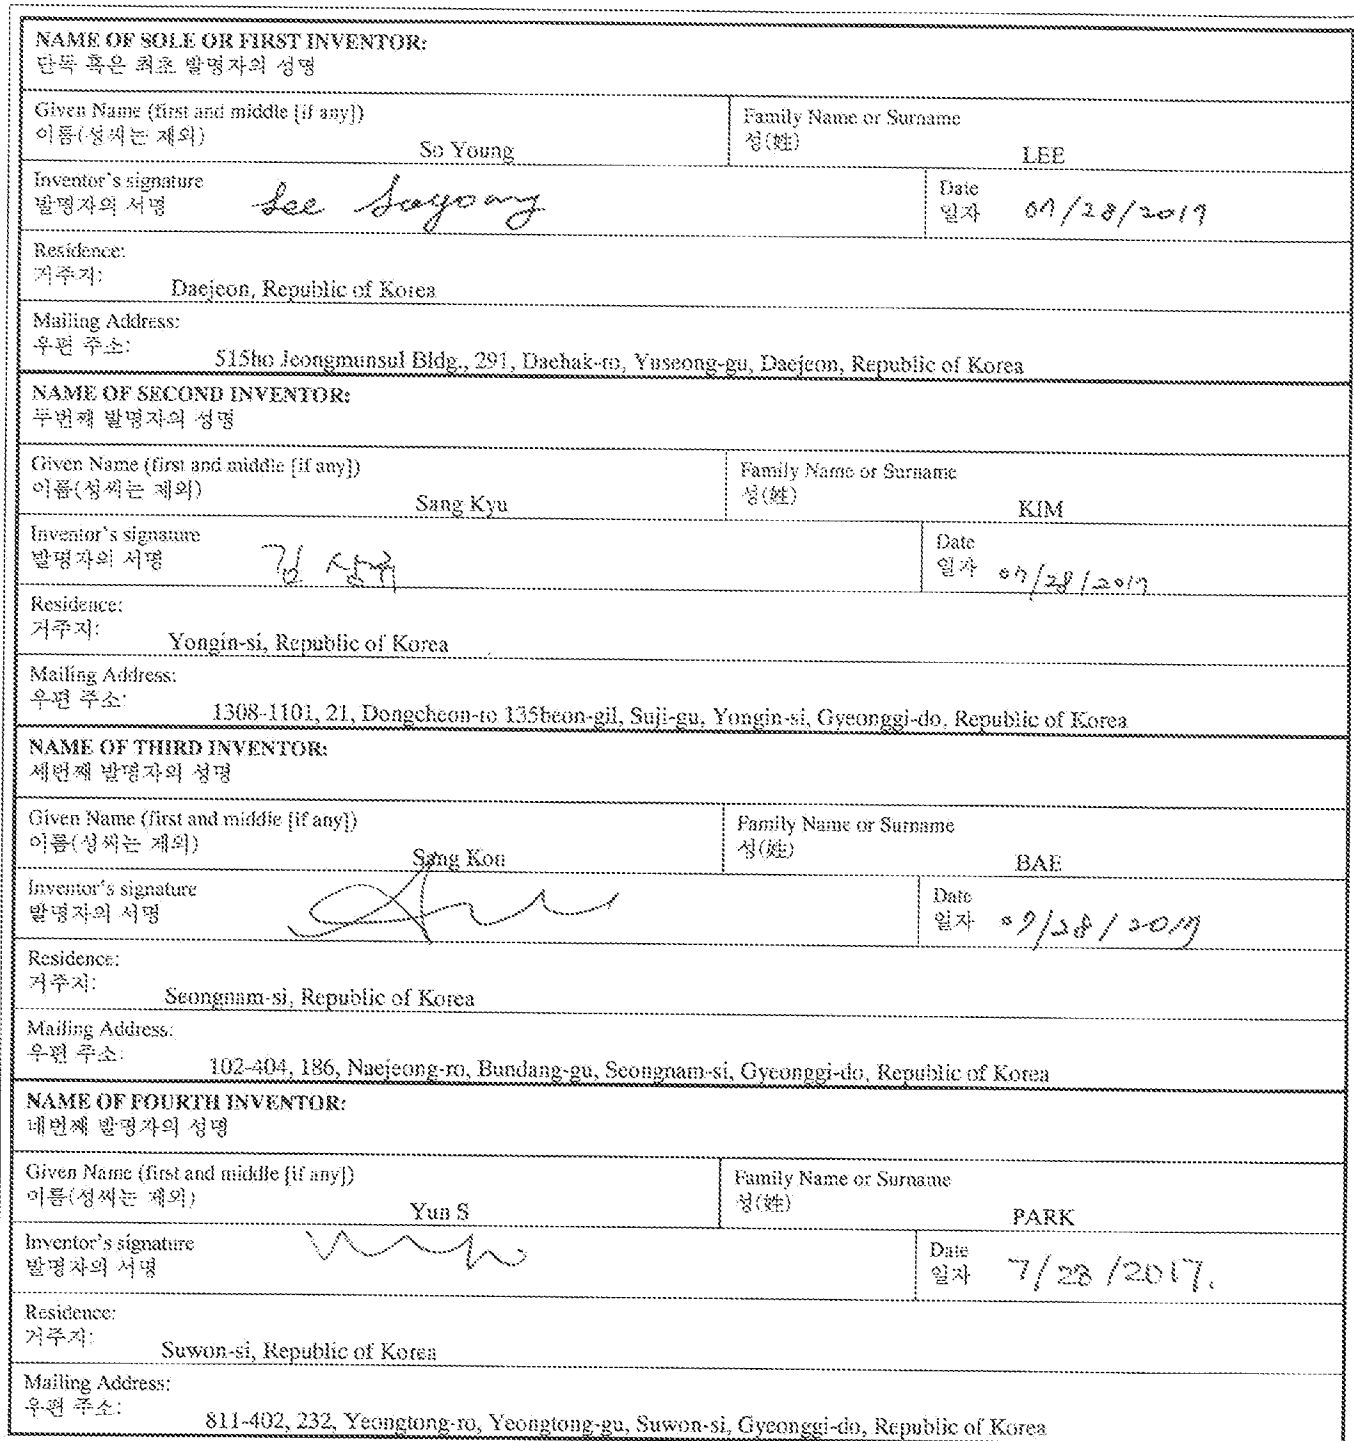 NAME OF SOLE OR FIRST INVENTOR:
단독 혹은 최초 발명자의 성명
Given Name (first and middle [if any])
이름(성씨는 제외)
So Young
Family Name or Surname
성(姓)
LEE
Inventor's signature
발명자의 서명
Lee Soyoung
Date
일자
07/28/2017
Residence:
거주지:
Daejeon, Republic of Korea
Mailing Address:
우편 주소:
515ho Jeongmunsul Bldg., 291, Daehak-ro, Yuseong-gu, Daejeon, Republic of Korea
NAME OF SECOND INVENTOR:
두번째 발명자의 성명
Given Name (first and middle [if any])
이름(성씨는 제외)
Sang Kyu
Family Name or Surname
성(姓)
KIM
Inventor's signature
발명자의 서명
김상규
Date
일자
07/28/2017
Residence:
거주지:
Yongin-si, Republic of Korea
Mailing Address:
우편 주소:
1308-1101, 21, Dongcheon-ro 135beon-gil, Suji-gu, Yongin-si, Gyeonggi-do, Republic of Korea
NAME OF THIRD INVENTOR:
세번째 발명자의 성명
Given Name (first and middle [if any])
이름(성씨는 제외)
Sang Kon
Family Name or Surname
성(姓)
BAE
Inventor's signature
발명자의 서명
Date
일자
07/28/2017
Residence:
거주지:
Seongnam-si, Republic of Korea
Mailing Address:
우편 주소:
102-404, 186, Naejeong-ro, Bundang-gu, Seongnam-si, Gyeonggi-do, Republic of Korea
NAME OF FOURTH INVENTOR:
네번째 발명자의 성명
Given Name (first and middle [if any])
이름(성씨는 제외)
Yun S
Family Name or Surname
성(姓)
PARK
Inventor's signature
발명자의 서명
Date
일자
7/28/2017.
Residence:
거주지:
Suwon-si, Republic of Korea
Mailing Address:
우편 주소:
811-402, 232, Yeongtong-ro, Yeongtong-gu, Suwon-si, Gyeonggi-do, Republic of Korea